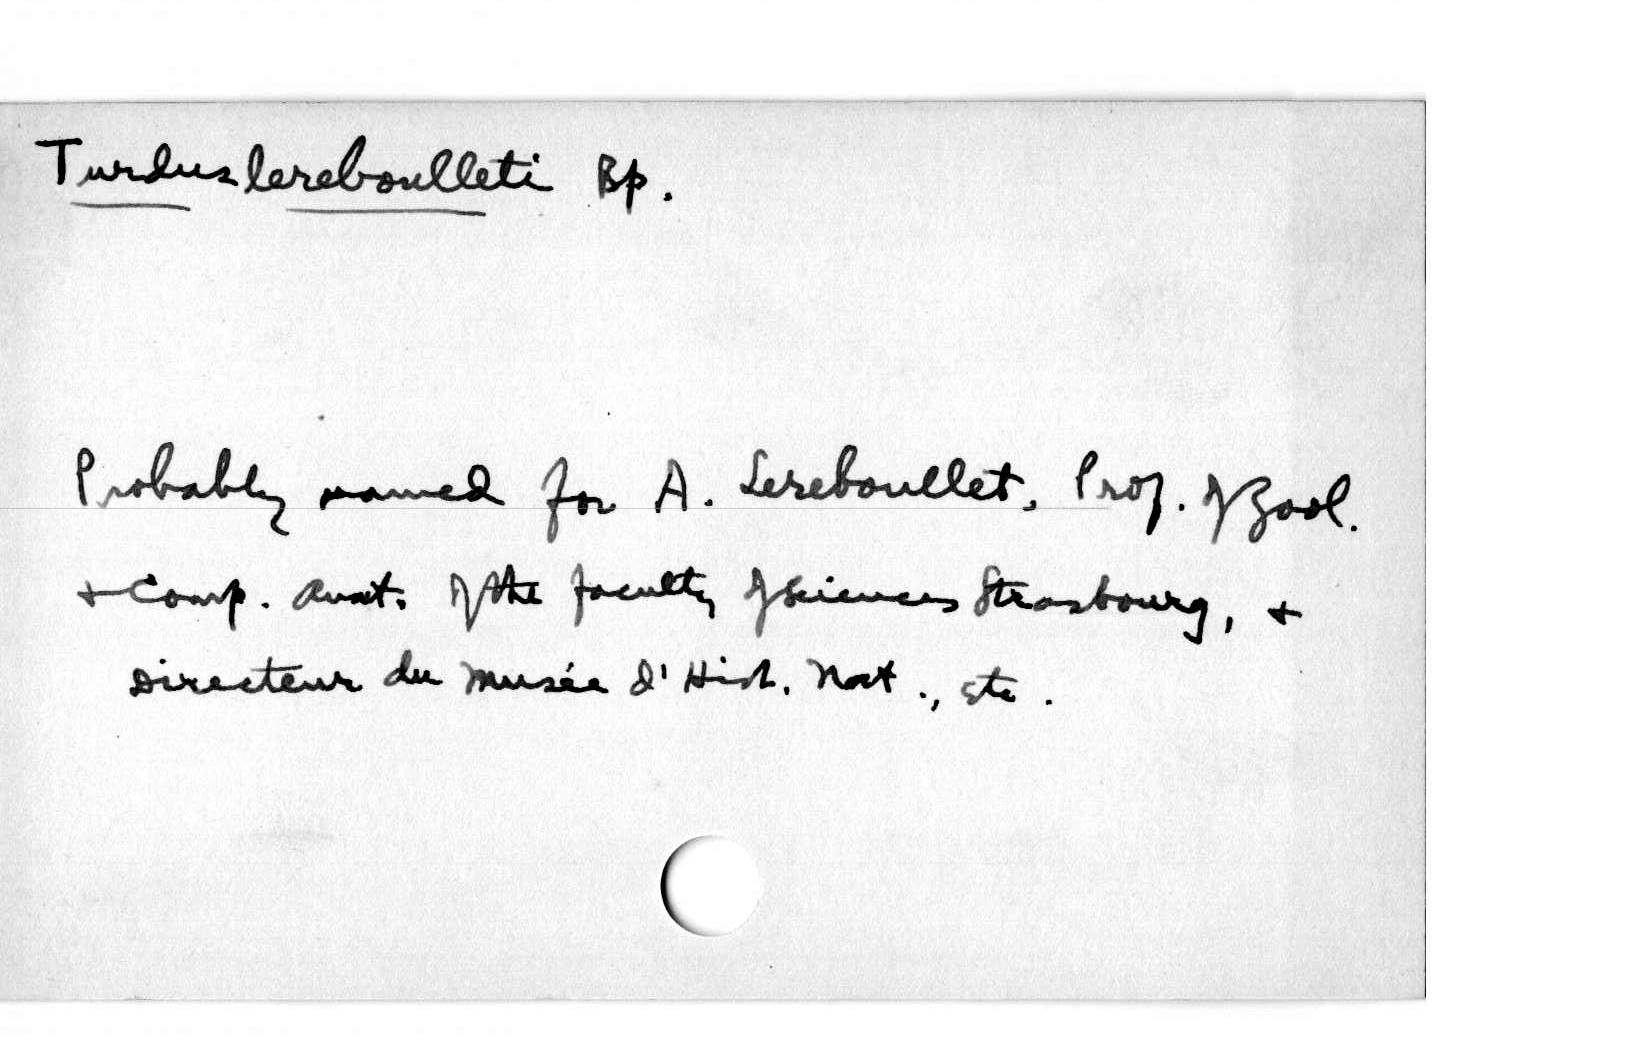 Turdus lereboulleti Bp.
Probably named for A. Lereboullet, Prof. of Zool.
+ Comp. Anat. of the faculty of Sciences Strasbourg, +
Directeur du Musée d'Hist. Nat., etc.